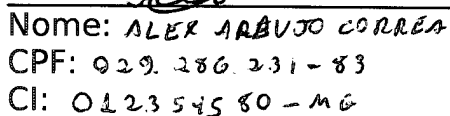 Nome: ALEX ARAUJO CORREA
CPF: 029.286.231-83
CI: 012354580-MG